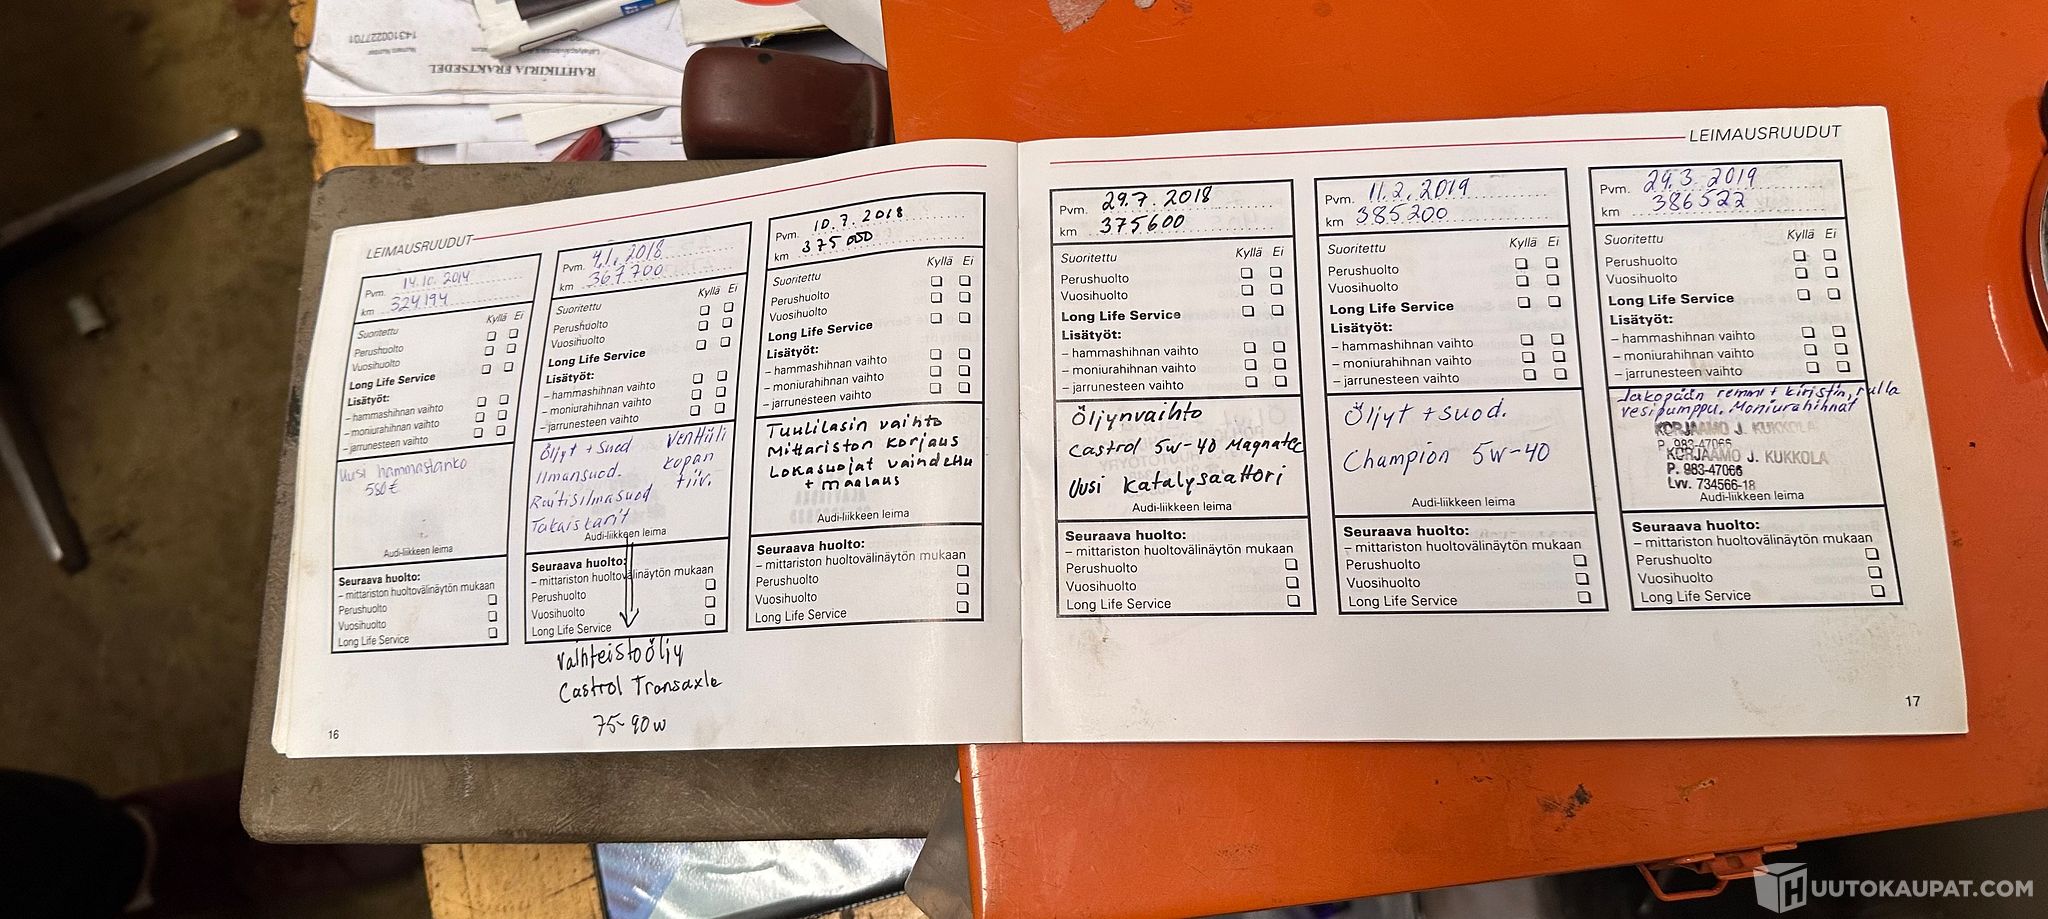 14310022701
RAHTIKIRJA FRAKTSEDEL
LEIMAUSRUUDUT
Pvm. 14.10. 2014
km 324194
Suoritettu Kyllä Ei
Perushuolto
Vuosihuolto
Long Life Service
Lisätyöt:
– hammashihnan vaihto
– moniurahihnan vaihto
– jarrunesteen vaihto
Uusi hammastanko
550€
Audi-liikkeen leima
Seuraava huolto:
– mittariston huoltovälinäytön mukaan
Perushuolto
Vuosihuolto
Long Life Service
Pvm. 4.1. 2018
km 367700
Suoritettu Kyllä Ei
Perushuolto
Vuosihuolto
Long Life Service
Lisätyöt:
– hammashihnan vaihto
– moniurahihnan vaihto
– jarrunesteen vaihto
Öljyt + suod venttiili
Ilmansuod. kopan
Raitisilmasuod tiiv.
Takaiskarit
Audi-liikkeen leima
Seuraava huolto:
– mittariston huoltovälinäytön mukaan
Perushuolto
Vuosihuolto
Long Life Service
Vaihteistoöljy
Castrol Transaxle
75-90w
Pvm. 10.7.2018
km 375000
Suoritettu Kyllä Ei
Perushuolto
Vuosihuolto
Long Life Service
Lisätyöt:
– hammashihnan vaihto
– moniurahihnan vaihto
– jarrunesteen vaihto
Tuulilasin vaihto
Mittariston korjaus
Lokasuojat vaihdettu
+ maalaus
Audi-liikkeen leima
Seuraava huolto:
– mittariston huoltovälinäytön mukaan
Perushuolto
Vuosihuolto
Long Life Service
16
LEIMAUSRUUDUT
Pvm. 29.7.2018
km 375600
Suoritettu Kyllä Ei
Perushuolto
Vuosihuolto
Long Life Service
Lisätyöt:
– hammashihnan vaihto
– moniurahihnan vaihto
– jarrunesteen vaihto
Öljynvaihto
Castrol 5w-40 Magnatec
Uusi katalysaattori
Audi-liikkeen leima
Seuraava huolto:
– mittariston huoltovälinäytön mukaan
Perushuolto
Vuosihuolto
Long Life Service
Pvm. 11.2.2019
km 385200
Suoritettu Kyllä Ei
Perushuolto
Vuosihuolto
Long Life Service
Lisätyöt:
– hammashihnan vaihto
– moniurahihnan vaihto
– jarrunesteen vaihto
Öljyt + suod.
Champion 5w-40
Audi-liikkeen leima
Seuraava huolto:
– mittariston huoltovälinäytön mukaan
Perushuolto
Vuosihuolto
Long Life Service
Pvm. 29.3.2019
km 386522
Suoritettu Kyllä Ei
Perushuolto
Vuosihuolto
Long Life Service
Lisätyöt:
– hammashihnan vaihto
– moniurahihnan vaihto
– jarrunesteen vaihto
Jakopään remmi + kiristin, rulla
vesipumppu. Moniurahihnat
KORJAAMO J. KUKKOLA
P. 983-47066
KORJAAMO J. KUKKOLA
P. 983-47066
Lvv. 734566-18
Audi-liikkeen leima
Seuraava huolto:
– mittariston huoltovälinäytön mukaan
Perushuolto
Vuosihuolto
Long Life Service
17
HUUTOKAUPAT.COM